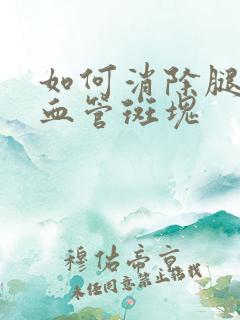 如何消除腿
血管斑块
穆佑帝亰
未经同意禁止搭载